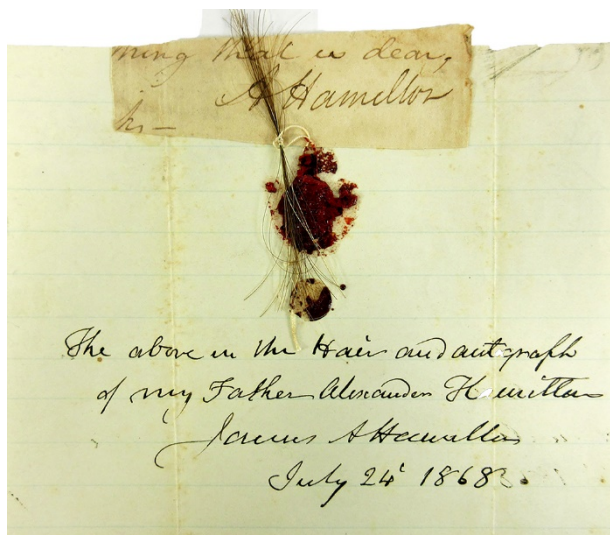 thing that is dear,
A Hamilton
The above is the Hair and autograph
of my Father Alexander Hamilton
James A Hamilton
July 24' 1868.